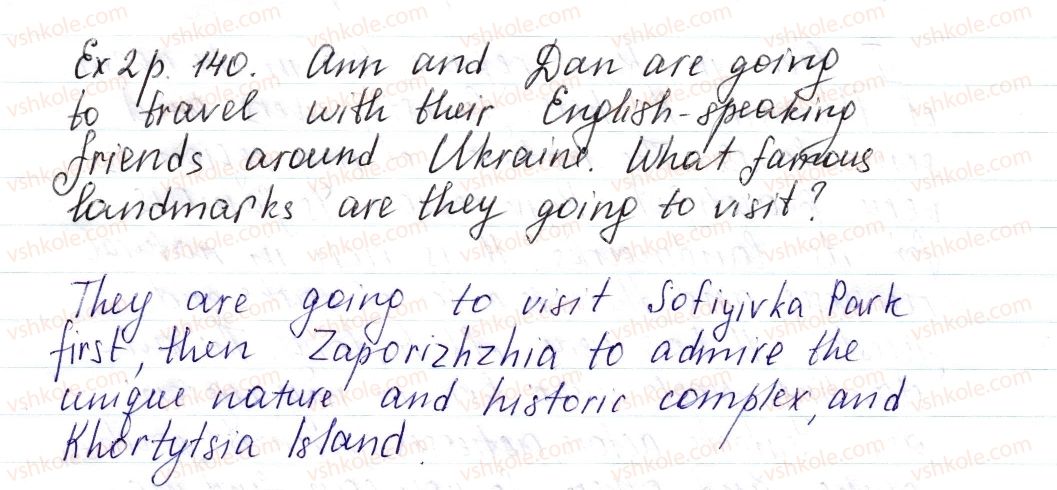 Ex 2 p. 140. Ann and Dan are going
to travel with their English-speaking
friends around Ukraine. What famous
landmarks are they going to visit?
They are going to visit Sofiyivka Park
first, then Zaporizhzhia to admire the
unique nature and historic complex, and
Khortytsia Island.